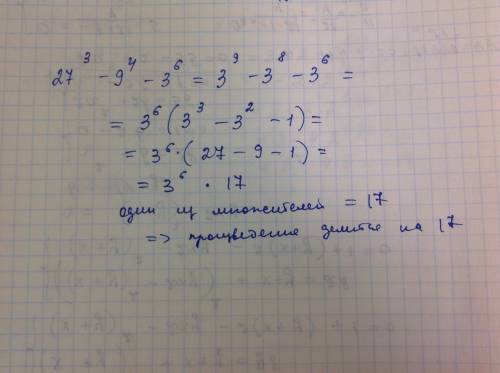 27³ - 9⁴ - 3⁶ = 3⁹ - 3⁸ - 3⁶ =
= 3⁶ (3³ - 3² - 1) =
= 3⁶ · (27 - 9 - 1) =
= 3⁶ · 17
один из множителей = 17
=> произведение делится на 17